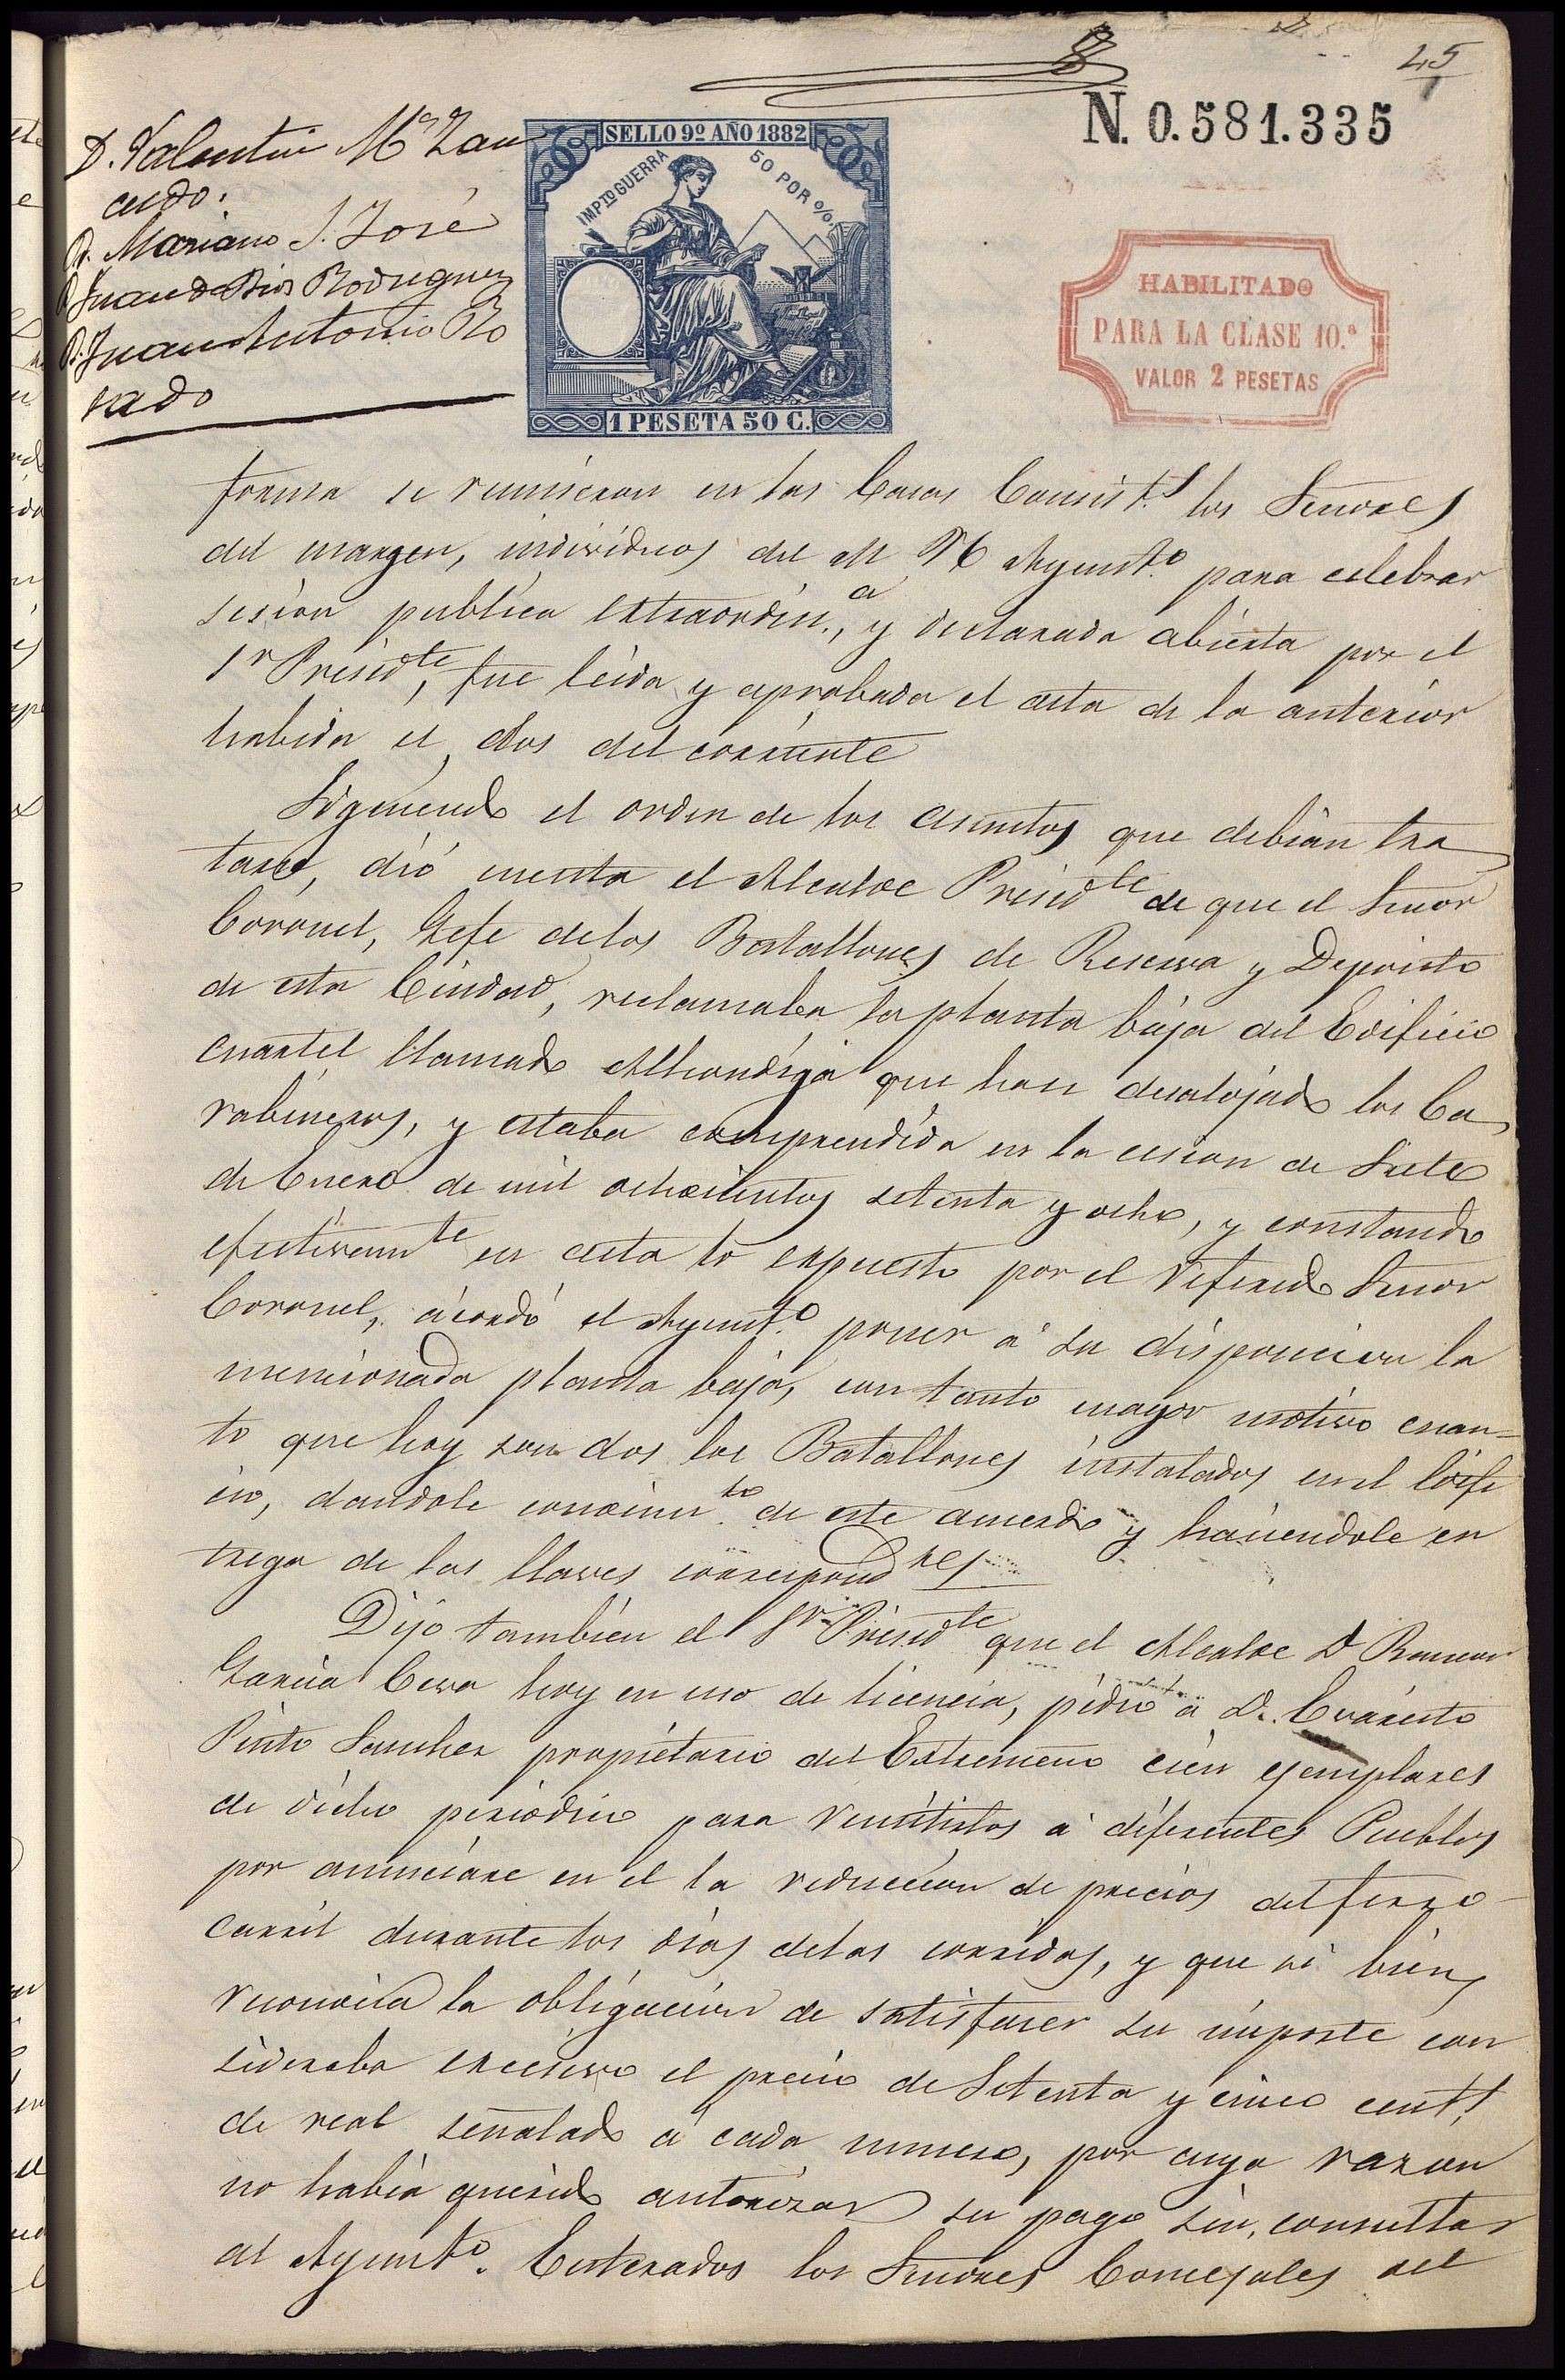 45
N. 0.581.335
D. Valentin Mª Zan
cudo.
D. Mariano S. José
D. Juan de Dios Rodriguez
D. Juan Antonio Ro
sado
SELLO 9º AÑO 1882
IMPTO GUERRA 50 POR %
1 PESETA 50 C.
HABILITADO
PARA LA CLASE 10.ª
VALOR 2 PESETAS
forma se reunieron en las Casas Consist.s los Señores
del margen, individuos del M N Ayunt.o para celebrar
sesion publica extraordin.a, y declarada abierta por el
Sr Presidte, fue leida y aprobada el acta de la anterior
habida el dos del corriente
Siguiendo el orden de los asuntos que debian tra
tarse, dió cuenta el Alcalde Presidte de que el Señor
Coronel, Gefe delos Batallones de Reserva y Deposito
de esta Ciudad, reclamaba la planta baja del Edificio
cuartel llamado Alhondiga que han desalojado los Ca
rabineros, y estaba comprendida en la cesion de Siete
de Enero de mil ochocientos setenta y ocho, y constando
efectivamte en acta lo expuesto por el referido Señor
Coronel, acordó el Ayunt.o poner á su disposicion la
mencionada planta baja, con tanto mayor motivo cuan=
to que hoy son dos los Batallones instalados en el Edifi
cio, dandole conocim.to de este acuerdo y haciendole en
trega de las llaves correspondtes
Dijo tambien el Sr Presidte que el Alcalde D Ramon
Garcia Ceva hoy en uso de licencia, pidió á D. Evaristo
Pinto Sanchez propietario del Extremeño cien ejemplares
de dicho periodico para remitirlos á diferentes Pueblos
por anunciarse en el la reduccion de precios del ferro-
carril durante los dias delas corridas, y que si bien
reconocia la obligacion de satisfacer su importe con
sideraba excesivo el precio de Setenta y cinco cent.s
de real señalado á cada numero, por cuya razon
no habia querido autorizar su pago sin consultar
al Ayunt.o. Enterados los Señores Concejales del